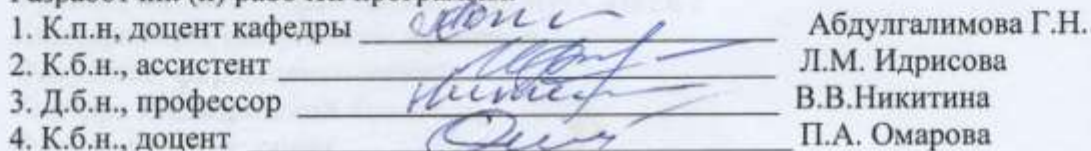 1. К.п.н, доцент кафедры Абдулгалимова Г.Н.
2. К.б.н., ассистент Л.М. Идрисова
3. Д.б.н., профессор В.В.Никитина
4. К.б.н., доцент П.А. Омарова